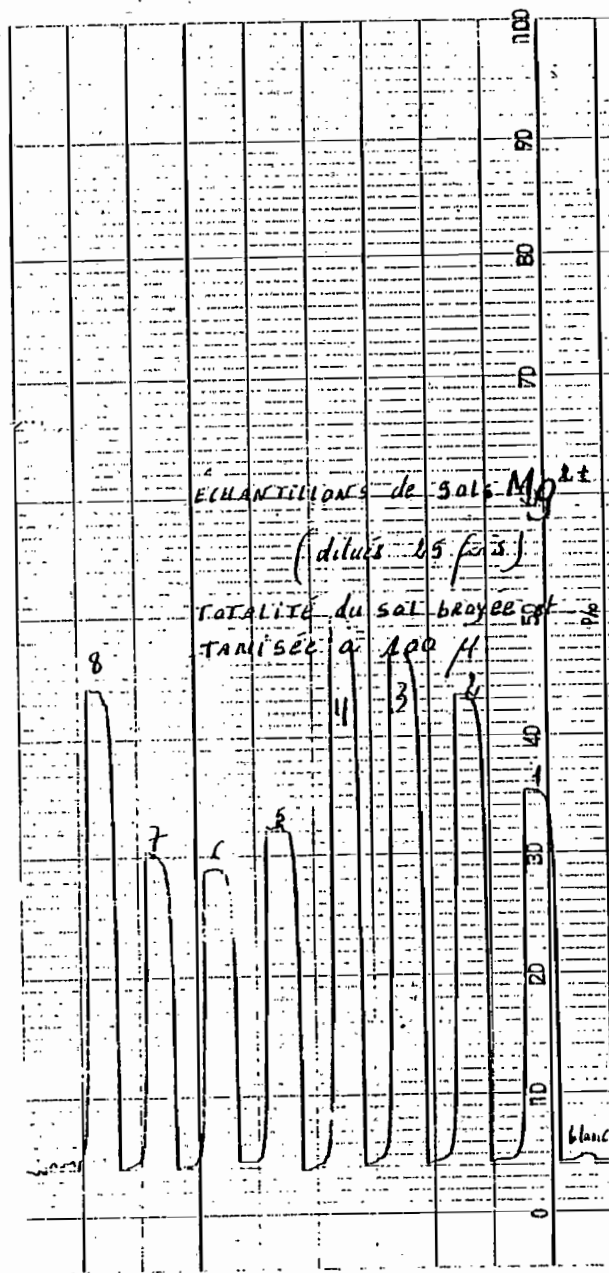 100
90
80
70
ÉCHANTILLONS de sols Mg2+
(dilués 25 fois)
TOTALITÉ du sol broyée et
50
TAMISÉE à 100 μ
8
4
3
2
40
1
7
6
5
30
20
10
blanc
0